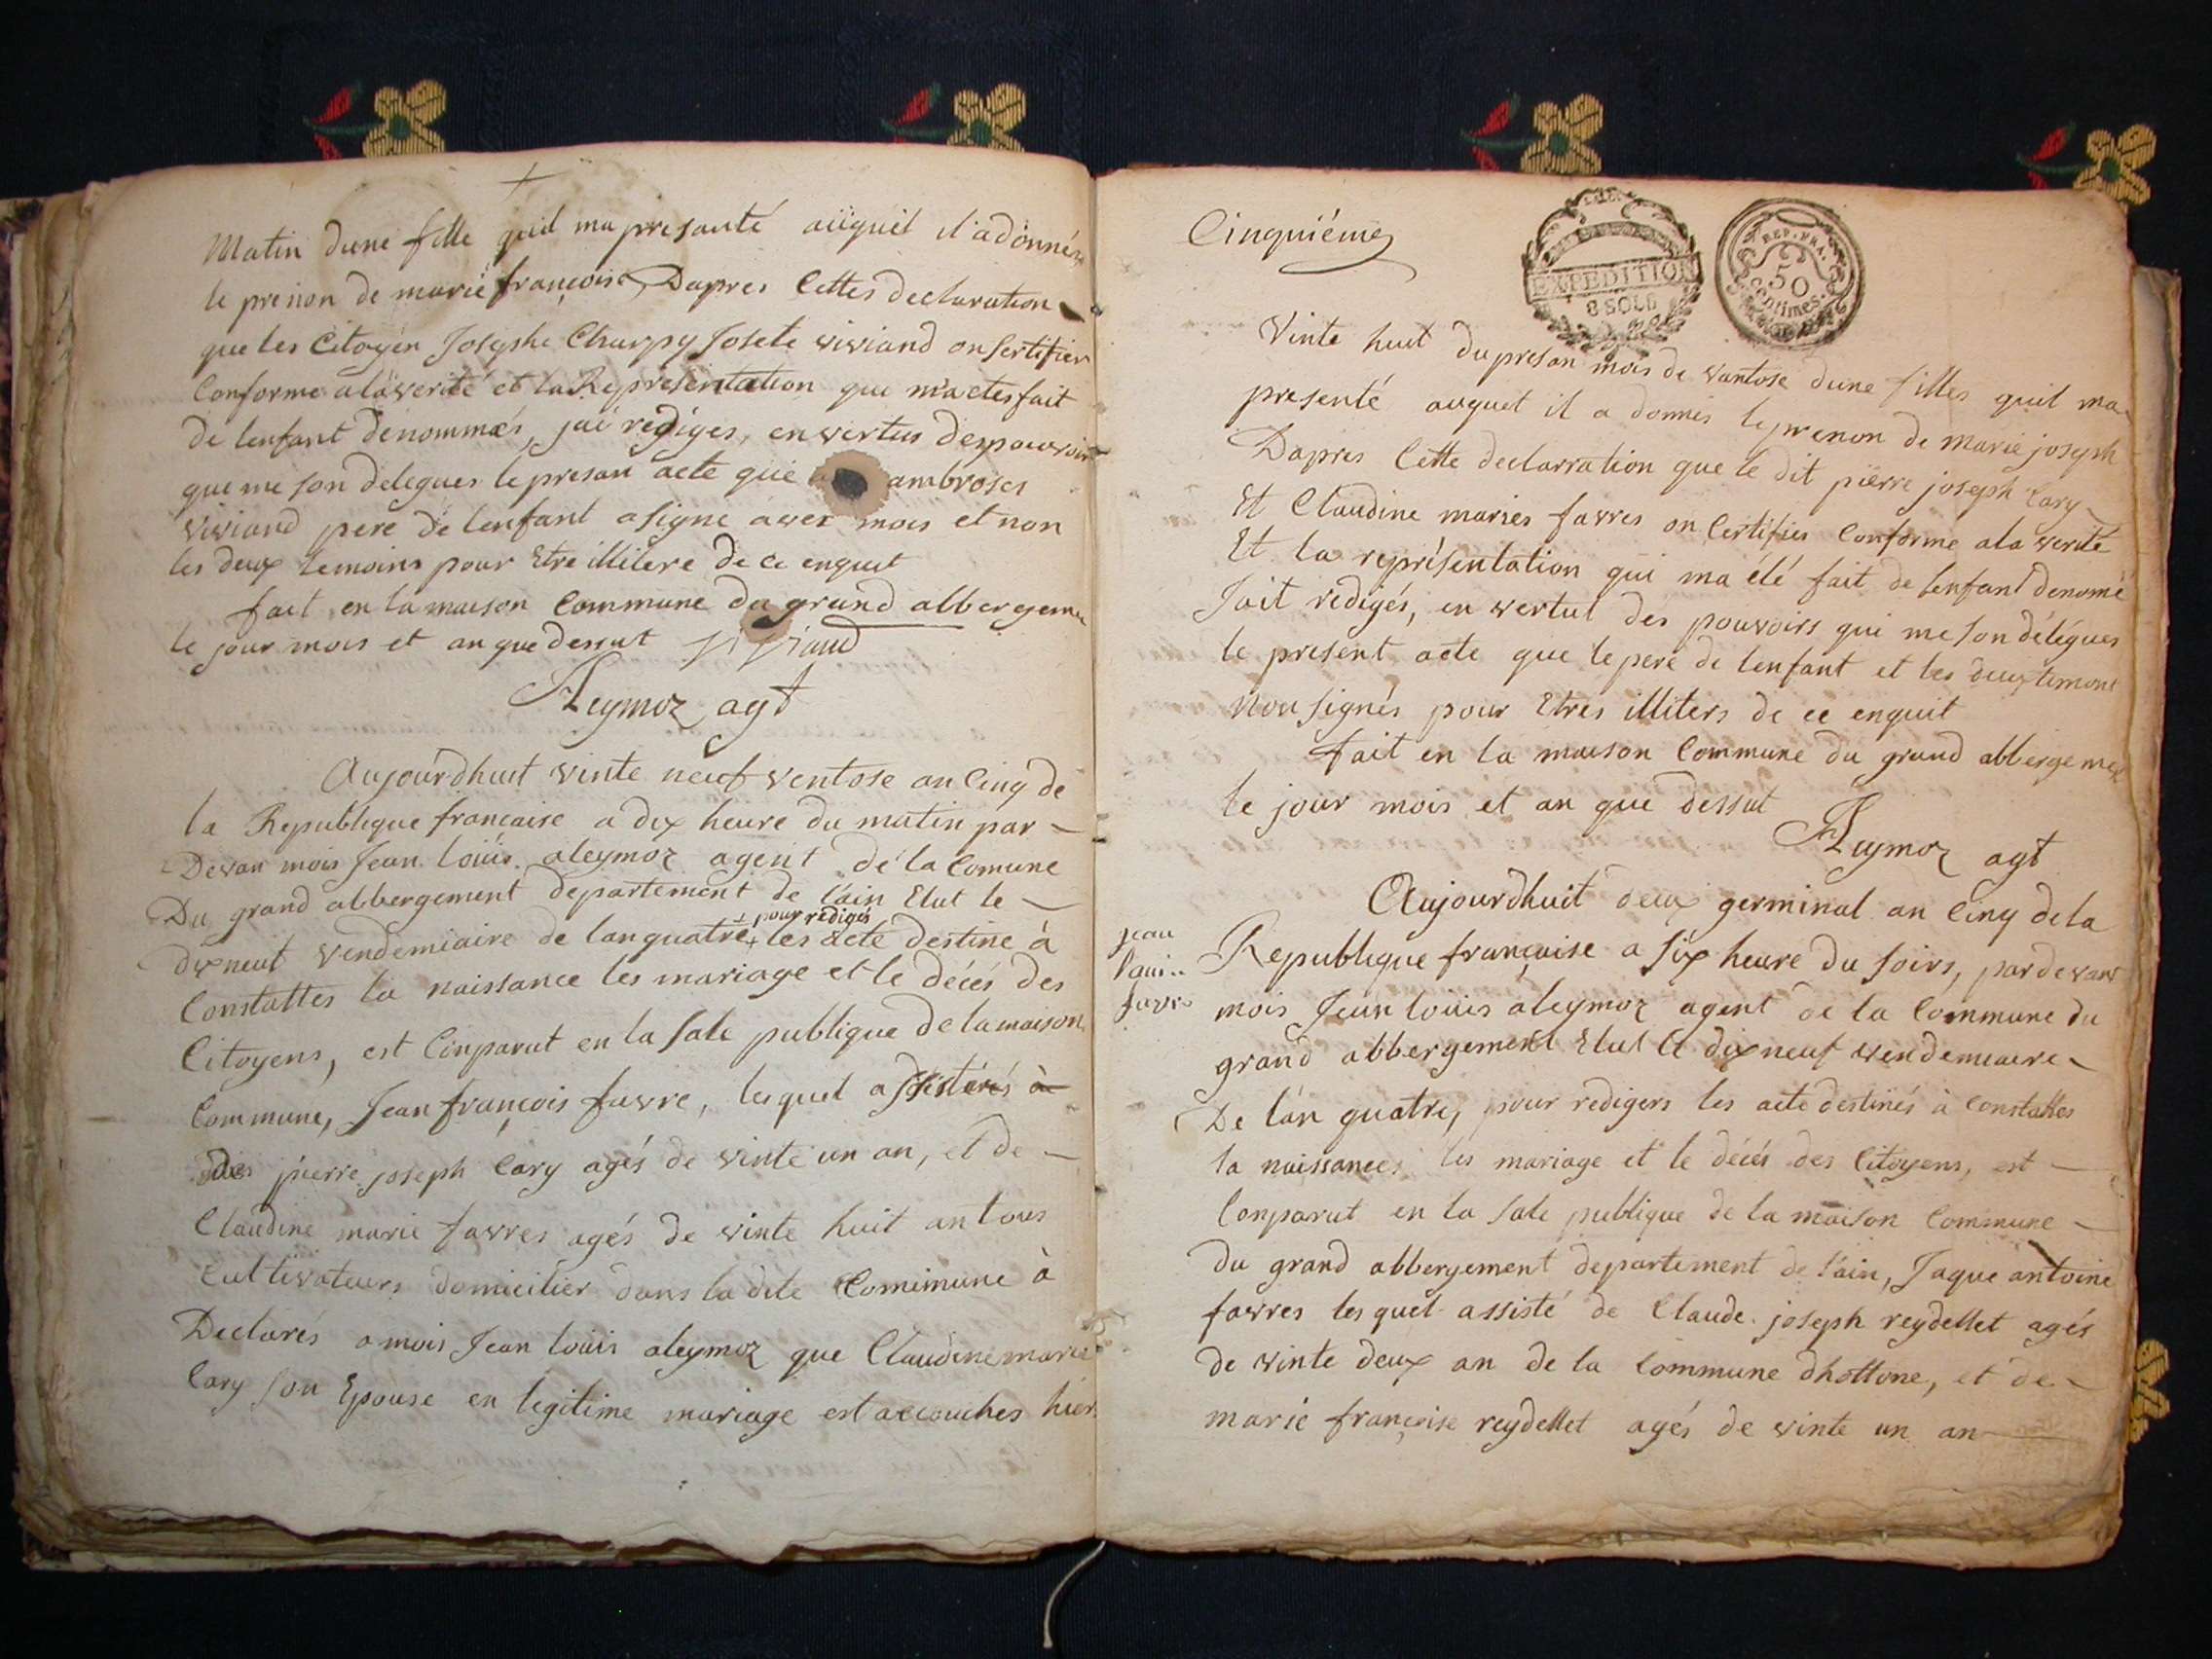 Matin dune fille quil ma presanté aüquél il a donnés
le prenon de marie françoise Dapres Cettes declaration
que les Citoyén Josephe Charpy Josete viviand on sertifier
Conforme alaverité et la Representation que m'a etes fait
de lenfant dénommés, jai rediges, en vertus des pouvoir
que me son delegues le presan acte que ambroses
viviand pere de lenfant a signe avex mois et non
les deux temoins pour Etre illitere de ce enquit
fait en la maison Commune du grand albergeme
le jour mois et an que dessut viviand
Aleymoz agt
Aujourdhuit vinte neuf ventose an Cinq de
la Republique francaise a dix heure du matin par
Devan mois Jean loüis aleymoz agent de la Comune
Du grand abbergement departement de l'ain Elut le
+ pour rediges
dix neuf vendemiaire de lan quatre + les acte destine à
Constattes la naissance les mariage et le décés des
Citoyens, est Conparut en la sale publique de la maison
Commune, Jean françois favre, lesquel assistés à
de pierre joseph Cary agés de vinte un an, et de
Claudine marie favres agés de vinte huit an tous
Cultivateurs domicilier dans la dite Commune à
Declarés a mois Jean loüis aleymoz que Claudine marie
Cary son Epouse en legitime mariage est accouches hier
Cinquiéme
EXPEDITION
8 SOLS
REP. FRA.
50
Centimes.
Vinte huit du presan mois de vantose dune filles quil ma
presenté auquel il a donnés le prenon de marie joseph
Dapres Cette declarration que le dit pierre joseph Cary
Et Claudine maries favres on Certifies Conforme ala verité
Et la représentation qui ma été fait de lenfant denomé
Jait redigés, en vertut des pouvoirs qui me son délégues
le present acte que le pere de lenfant et les deux temons
non signés pour Etres illiters de ce enquit
fait en la maison Commune du grand abbergeme
le jour mois et an que dessut
Aleymoz agt
jean
loui..
favre
Aujourdhuit deux germinal an Cinq de la
Republique française a six heure du soirs, par devant
mois Jean loüis aleymoz agent de la Commune du
grand abbergement Elut le dix neuf vendemeaire
De l'an quatre, pour redigers les acte destinés à constattes
la naissances les mariage et le décés des Citoyens, est
Conparut en la sale publique de la maison Commune
du grand abbergement departement de l'ain, Jaque antoine
favres lesquel assisté de Claude joseph reydellet agés
de vinte deux an de la Commune dhottone, et de
marie françoise reydellet agés de vinte un an